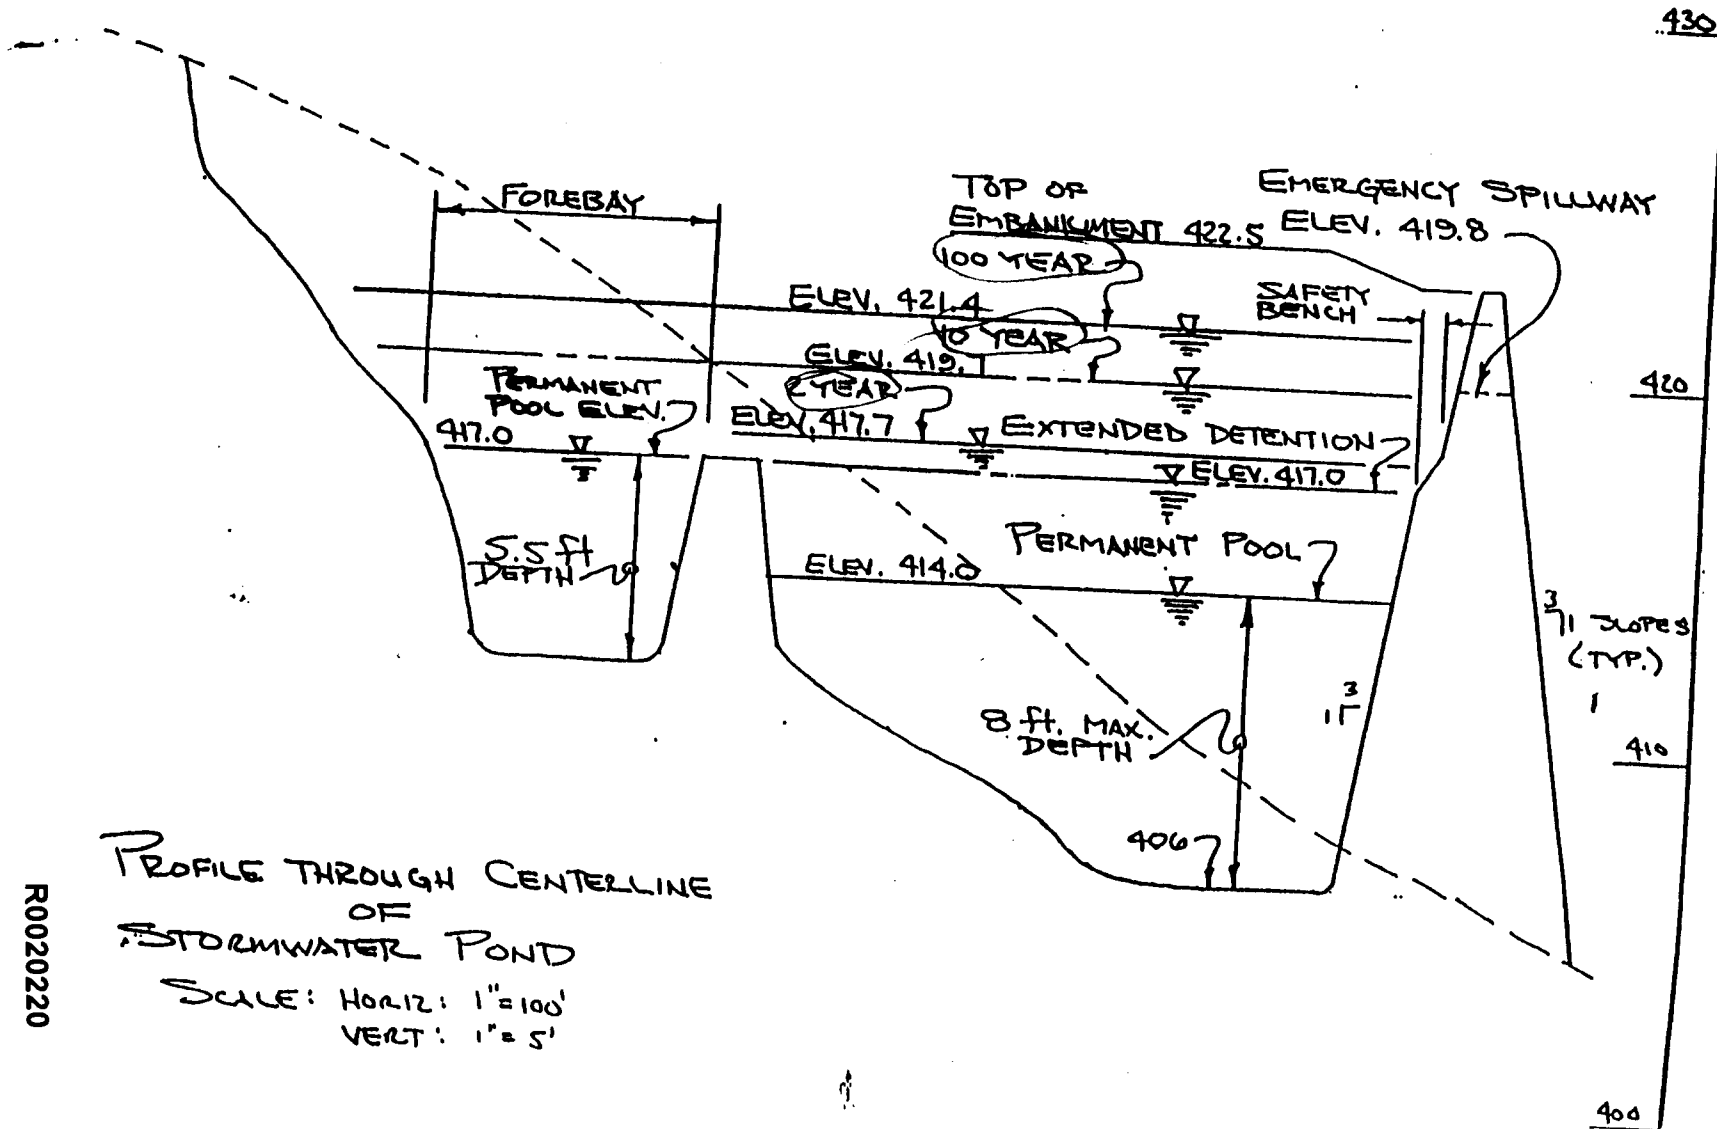 430
TOP OF
EMBANKMENT 422.5
EMERGENCY SPILLWAY
ELEV. 419.8
FOREBAY
100 YEAR
ELEV. 421.4
SAFETY
BENCH
10 YEAR
ELEV. 419.1
420
PERMANENT
POOL ELEV.
417.0
2 YEAR
ELEV. 417.7
EXTENDED DETENTION
ELEV. 417.0
5.5 ft
DEPTH
PERMANENT POOL
ELEV. 414.0
3
1 SLOPES
(TYP.)
3
1
8 ft. MAX.
DEPTH
410
406
PROFILE THROUGH CENTERLINE
OF
STORMWATER POND
SCALE: HORIZ: 1"=100'
VERT: 1"= 5'
R0020220
400